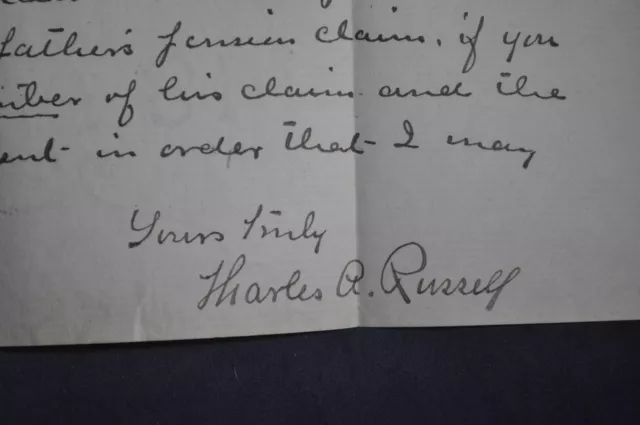 father's pension claim, if you
mber of his claim and the
ent in order that I may
Yours truly
Charles A. Russell